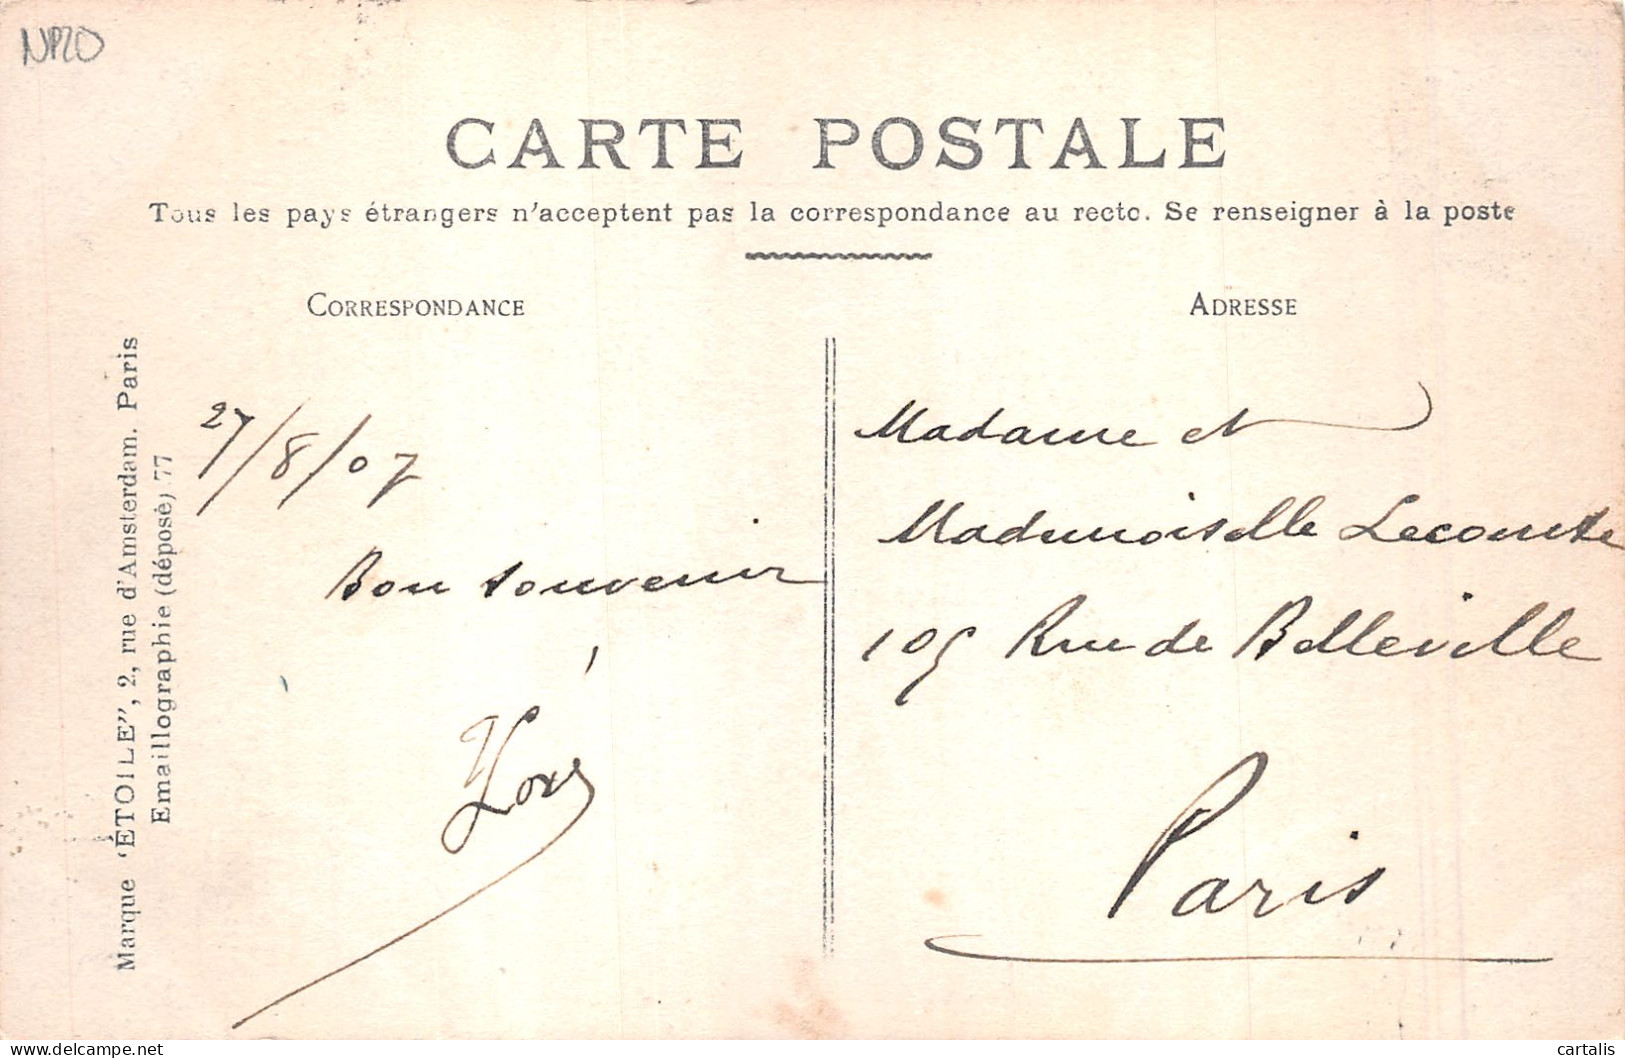 NP20
CARTE POSTALE
Tous les pays étrangers n'acceptent pas la correspondance au recto. Se renseigner à la poste
CORRESPONDANCE
ADRESSE
Marque "ÉTOILE", 2, rue d'Amsterdam. Paris
Emaillographie (déposé) 77
27/8/07
Bon souvenir
Madame et
Mademoiselle Lecomte
105 Rue de Belleville
Paris
delcampe.net
cartalis